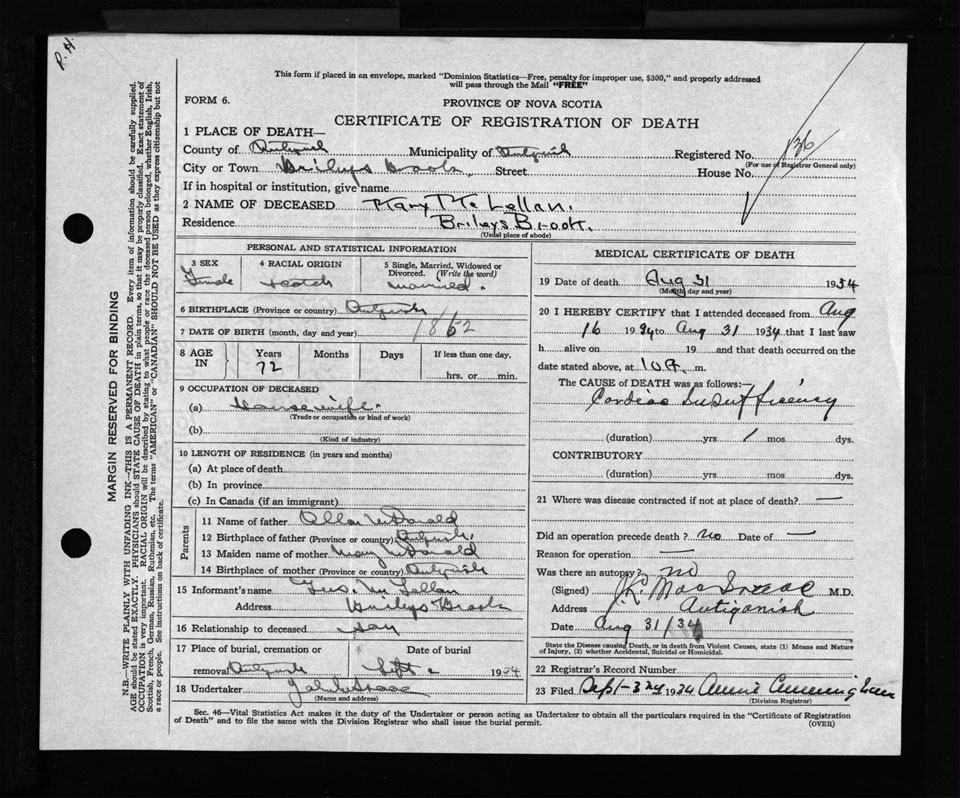 P. H.
This form if placed in an envelope, marked "Dominion Statistics—Free, penalty for improper use, $300," and properly addressed
will pass through the Mail "FREE"
FORM 6.
PROVINCE OF NOVA SCOTIA
CERTIFICATE OF REGISTRATION OF DEATH
1 PLACE OF DEATH—
County of Municipality of Registered No. 136
(For use of Registrar General only)
City or Town Brileys Brook Street House No.
If in hospital or institution, give name
2 NAME OF DECEASED Mary McLellan.
Residence Brileys Brook.
(Usual place of abode)
PERSONAL AND STATISTICAL INFORMATION
3 SEX Female
4 RACIAL ORIGIN Scotch
5 Single, Married, Widowed or
Divorced. (Write the word)
Married.
6 BIRTHPLACE (Province or country)
7 DATE OF BIRTH (month, day and year) 1862
8 AGE IN Years 72 Months Days If less than one day,
hrs. or min.
9 OCCUPATION OF DECEASED
(a) Housewife.
(Trade or occupation or kind of work)
(b)
(Kind of industry)
10 LENGTH OF RESIDENCE (in years and months)
(a) At place of death
(b) In province
(c) In Canada (if an immigrant)
Parents
11 Name of father Allan McDonald
12 Birthplace of father (Province or country)
13 Maiden name of mother Mary McDonald
14 Birthplace of mother (Province or country)
15 Informant's name McLellan
Address Brileys Brook
16 Relationship to deceased
17 Place of burial, cremation or Date of burial
removal Sept 1934
18 Undertaker
(Name and address)
MEDICAL CERTIFICATE OF DEATH
19 Date of death Aug 31 1934
(Month day and year)
20 I HEREBY CERTIFY that I attended deceased from Aug
16 1934 to Aug 31 1934 that I last saw
h alive on 19 and that death occurred on the
date stated above, at 10 A. m.
The CAUSE of DEATH was as follows:—
Cardiac Insufficiency
(duration) yrs 1 mos dys.
CONTRIBUTORY
(duration) yrs mos dys.
21 Where was disease contracted if not at place of death? —
Did an operation precede death? no Date of —
Reason for operation —
Was there an autopsy? no
(Signed) MacIsaac M.D.
Address Antigonish
Date Aug 31/34
State the Disease causing Death, or in death from Violent Causes, state (1) Means and Nature
of Injury, (2) whether Accidental, Suicidal or Homicidal.
22 Registrar's Record Number
23 Filed Sept 1934 Annie Cunningham
(Division Registrar)
Sec. 46—Vital Statistics Act makes it the duty of the Undertaker or person acting as Undertaker to obtain all the particulars required in the "Certificate of Registration
of Death" and to file the same with the Division Registrar who shall issue the burial permit. (OVER)
MARGIN RESERVED FOR BINDING
N.B.—WRITE PLAINLY WITH UNFADING INK—THIS IS A PERMANENT RECORD. Every item of information should be carefully supplied.
AGE should be stated EXACTLY. PHYSICIANS should STATE CAUSE OF DEATH in plain terms, so that it may be properly classified. Exact statement of
OCCUPATION is very important. RACIAL ORIGIN will be described by stating to what people or race the deceased person belonged, whether English, Irish,
Scottish, French, German, Russian, Ruthenian, etc. The terms "AMERICAN" or "CANADIAN" SHOULD NOT BE USED as they express citizenship but not
a race or people. See instructions on back of certificate.